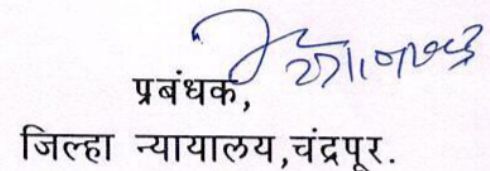 प्रबंधक,
जिल्हा न्यायालय,चंद्रपूर.